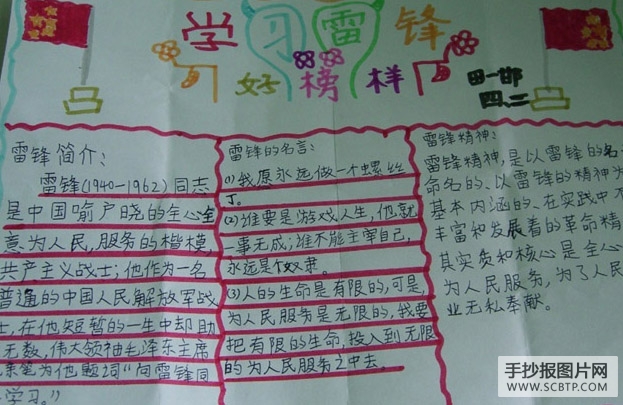 学习雷锋
好榜样
四、二
雷锋简介:
雷锋(1940-1962)同志
是中国喻户晓的全心全
意为人民,服务的楷模,
共产主义战士;他作为一名
普通的中国人民解放军战
士,在他短暂的一生中却助
无数,伟大领袖毛泽东主席
亲笔为他题词“向雷锋同
学习。”
雷锋的名言:
(1)我愿永远做一个螺丝
丁。
(2)谁要是游戏人生,他就
一事无成;谁不能主宰自己,
永远是个奴隶。
(3)人的生命是有限的,可是,
为人民服务是无限的,我要
把有限的生命,投入到无限
的为人民服务之中去。
雷锋精神:
雷锋精神,是以雷锋的名
命名的、以雷锋的精神为
基本内涵的、在实践中不
丰富和发展着的革命精
其实负和核心是全心
为人民服务,为了人民
业无私奉献。
手抄报图片网
www.SCBTP.com